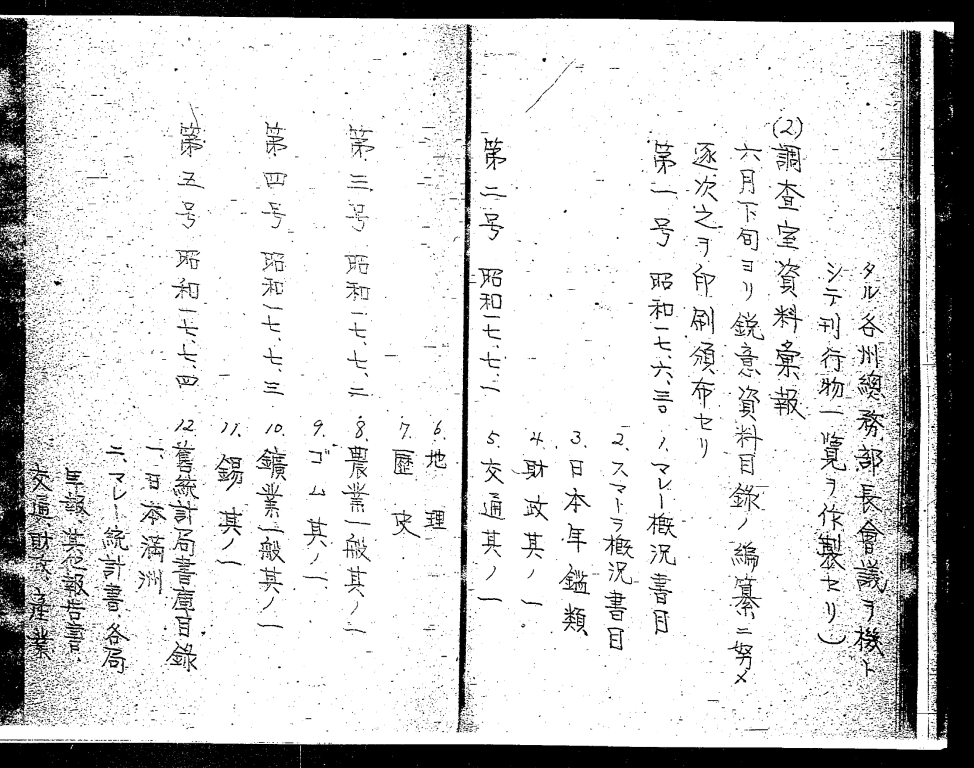 タル各州總務部長會議ヲ機ト
シテ刊行物一覽ヲ作製セリ)
(2)調査室資料彙報
六月下旬ヨリ鋭意資料目錄ノ編纂ニ努メ
逐次之ヲ印刷頒布セリ
第一号 昭和一七、六、三〇 1.マレー概況書目
2.スマトラ概況書目
3.日本年鑑類
4.財政其ノ一
第二号 昭和一七、七、一 5.交通其ノ一
6.地理
7.歷史
第三号 昭和一七、七、二 8.農業一般其ノ一
9.ゴム其ノ一
第四号 昭和一七、七、三 10.鑛業一般其ノ一
11.錫其ノ一
第五号 昭和一七、七、四 12.舊統計局書庫目錄
一、日本滿洲
二、マレー統計書、各局
年報、其他報告書、
交通財政、產業